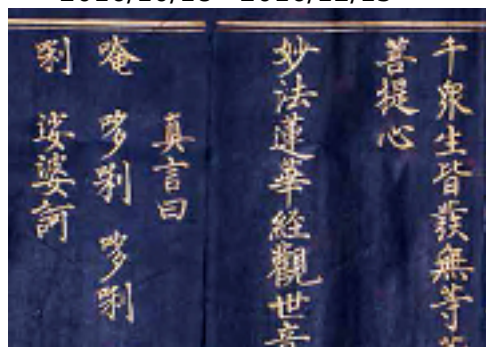 千眾生皆發無等等
菩提心
妙法蓮華經觀世音
真言曰
唵 哆唎 哆唎
唎 娑婆訶